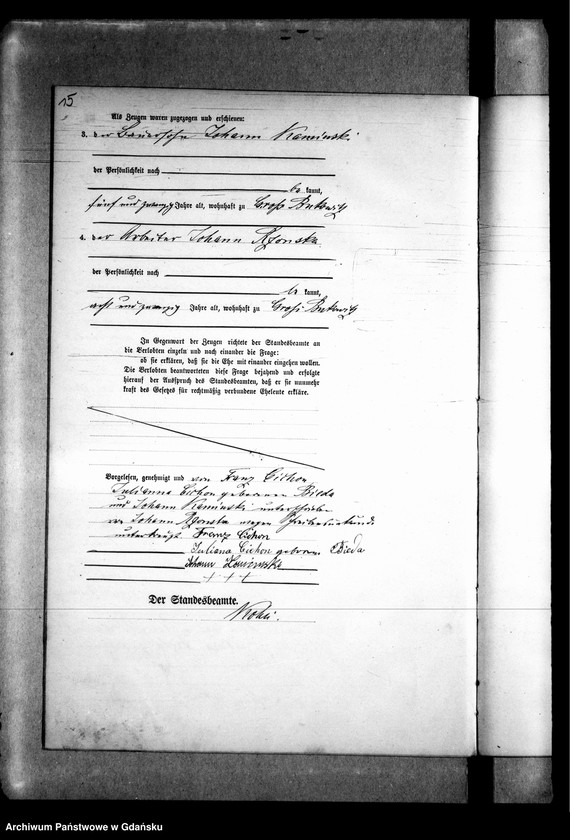 15
Als Zeugen waren zugezogen und erschienen:
3. der Bauersohn Johann Kaminski
der Persönlichkeit nach
be kannt,
fünf und zwanzig Jahre alt, wohnhaft zu Groß Butowitz
4. der Arbeiter Johann
der Persönlichkeit nach
be kannt,
acht und zwanzig Jahre alt, wohnhaft zu Groß Butowitz
In Gegenwart der Zeugen richtete der Standesbeamte an
die Verlobten einzeln und nach einander die Frage:
ob sie erklären, daß sie die Ehe mit einander eingehen wollen.
Die Verlobten beantworteten diese Frage bejahend und erfolgte
hierauf der Ausspruch des Standesbeamten, daß er sie nunmehr
kraft des Gesetzes für rechtmäßig verbundene Eheleute erkläre.
Vorgelesen, genehmigt und von Franz Cichon
Julianna Cichon geborenen Bieda
und Johann Kaminski unterschrieben
von Johann wegen Schreibensunkunde
unterkreuzt Franz Cichon
Juliana Cichon geboren. Bieda
Johann
+ + +
Der Standesbeamte.